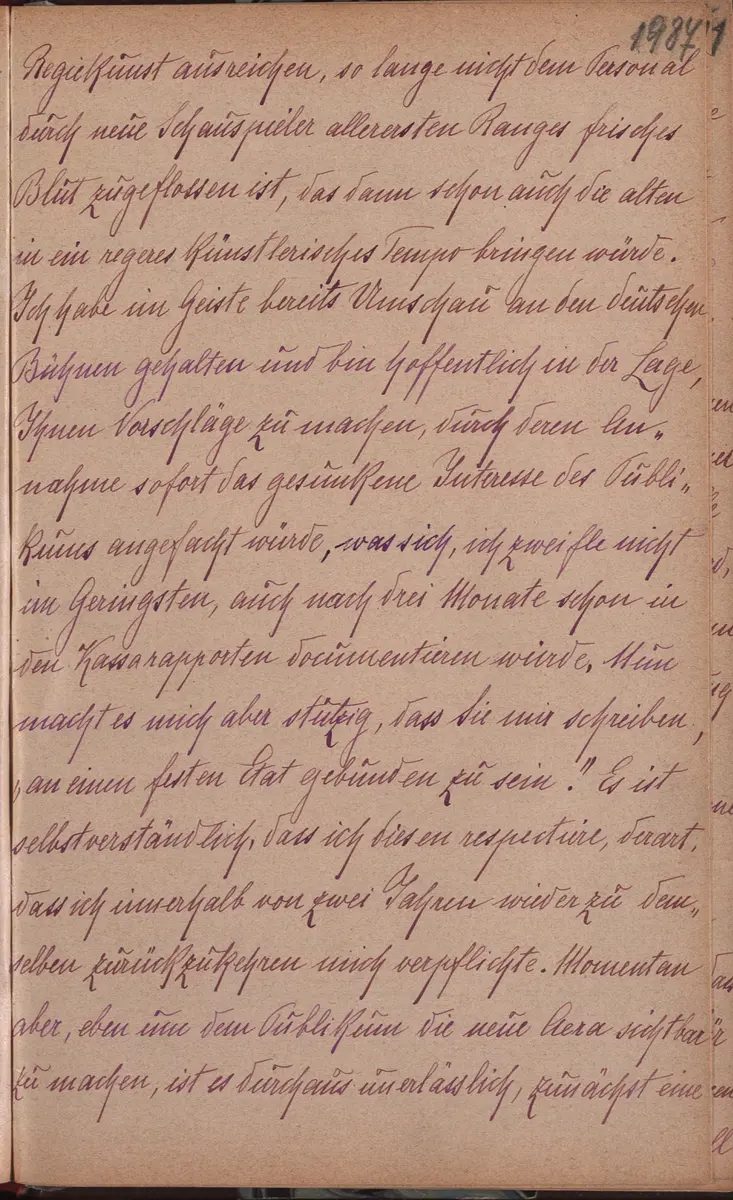 1987 1
Regiekunst ausreichen, so lange nicht dem Personal
durch neue Schauspieler allerersten Ranges frisches
Blut zugeflossen ist, das dann schon auch die alten
in ein regeres künstlerisches Tempo bringen würde.
Ich habe im Geiste bereits Umschau an den deutschen
Bühnen gehalten und bin hoffentlich in der Lage,
Ihnen Vorschläge zu machen, durch deren An„
nahme sofort das gesunkene Interesse des Publi„
kums angefacht würde, was sich, ich zweifle nicht
im Geringsten, auch nach drei Monate schon in
den Kassarapporten documentieren würde. Nun
macht es mich aber stutzig, dass Sie mir schreiben,
„an einen festen Etat gebunden zu sein." Es ist
selbstverständlich, dass ich diesen respectiere, derart,
dass ich innerhalb von zwei Jahren wieder zu dem„
selben zurückzukehren mich verpflichte. Momentan
aber, eben um dem Publikum die neue Aera sichtbar
zu machen, ist es durchaus unerlässlich, zunächst eine